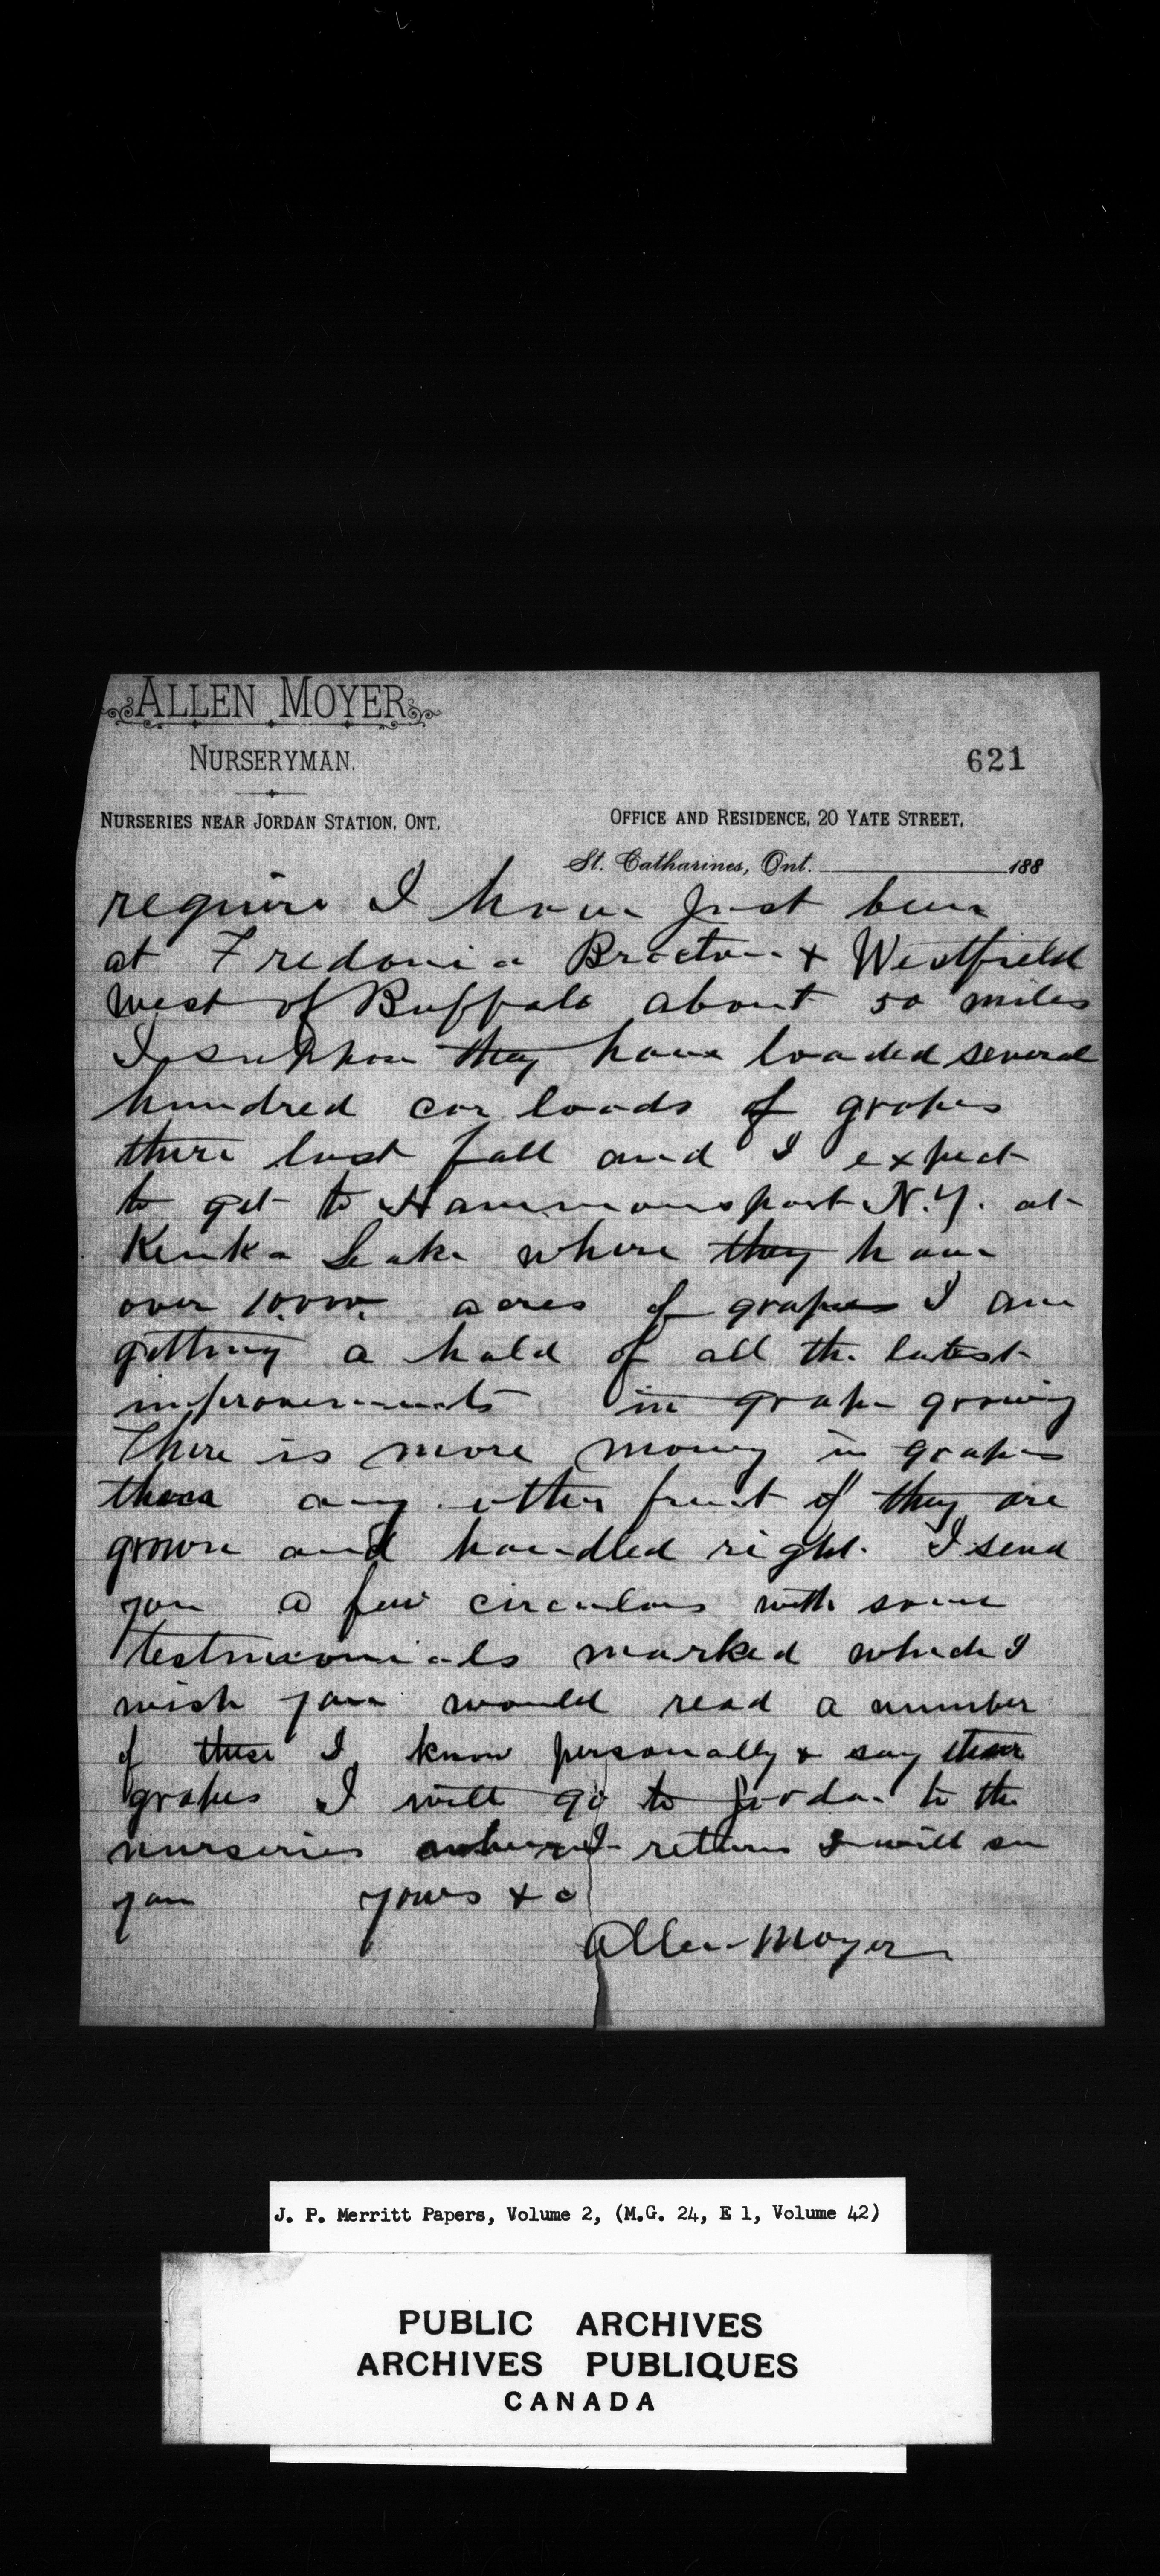 ALLEN MOYER
NURSERYMAN.
621
NURSERIES NEAR JORDAN STATION, ONT.
OFFICE AND RESIDENCE, 20 YATE STREET,
St. Catharines, Ont. 188
require I have just been
at Fredonia Brocton & Westfield
west of Buffalo about 50 miles
I suppose they have loaded several
hundred car loads of grapes
there last fall and I expect
to get to Hammonsport N.Y. at
Keuka Lake where they have
over 10.000. acres of grapes I am
getting a hold of all the latest
improvements in grape growing
There is more money in grapes
than any other fruit if they are
grown and handled right. I send
you a few circulars with some
testimonials marked which I
wish you would read a number
of these I know personally & say
grapes I will go to Jordan to the
nurseries when I return I will see
you yours & c
Allen Moyer
J. P. Merritt Papers, Volume 2, (M.G. 24, E 1, Volume 42)
PUBLIC ARCHIVES
ARCHIVES PUBLIQUES
CANADA